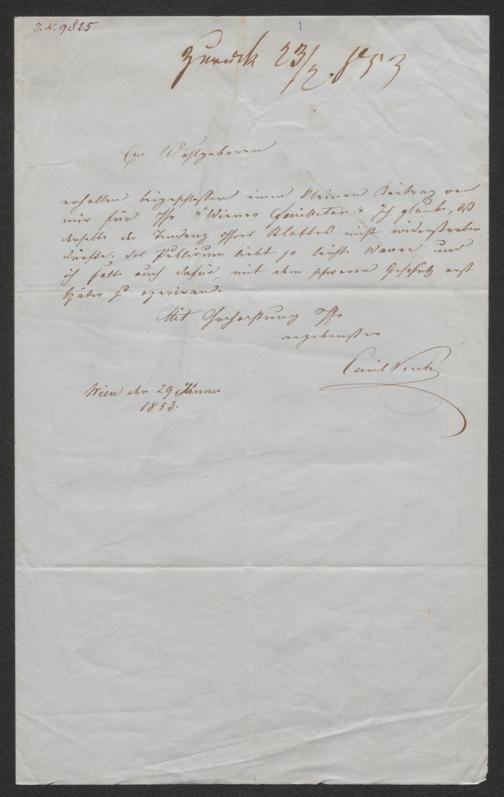 J. N. 9825
Zurück 23/2. 853
Ew Wohlgeboren
erhalten beigeschlossen einen kleinen Beitrag von
mir für Ihr "Wiener Ich glaube, daß
derselbe der Tendenz Ihres Blattes nicht widerstreben
dürfte. Das Publicum liebt so leichte Waare und
ich halte auch dafür, mit dem schweren Geschütz erst
später zu operiren.
Mit Hochachtung Ihr
ergebenster
Emil
Wien den 29 Jänner
1853.